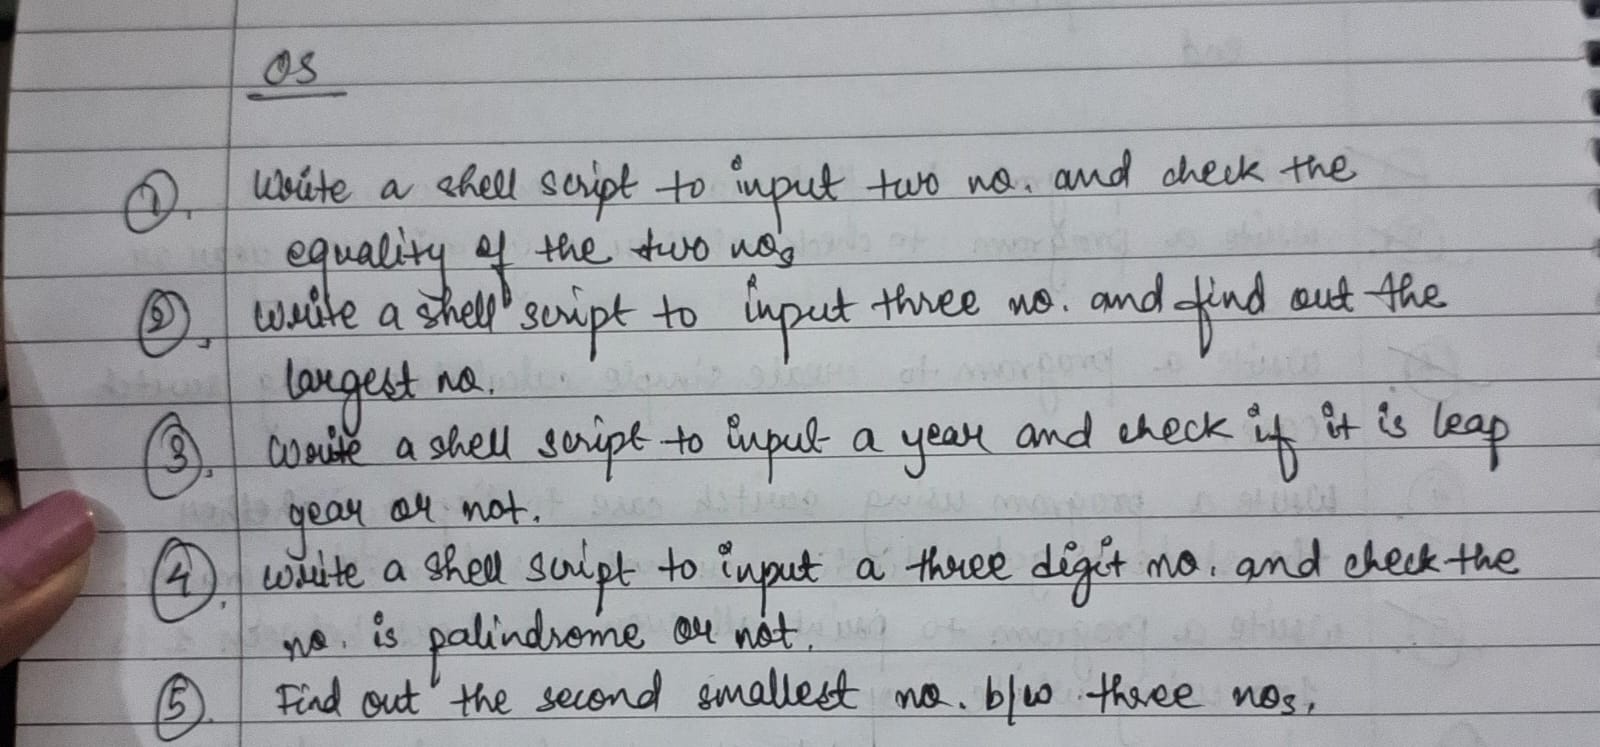 OS
1. Write a shell script to input two no. and check the
equality of the two nos
2. Write a shell script to input three no. and find out the
largest no.
3. Write a shell script to input a year and check if it is leap
year or not.
4. Write a shell script to input a three digit no. and check the
no. is palindrome or not.
5. Find out the second smallest no. b/w three nos.